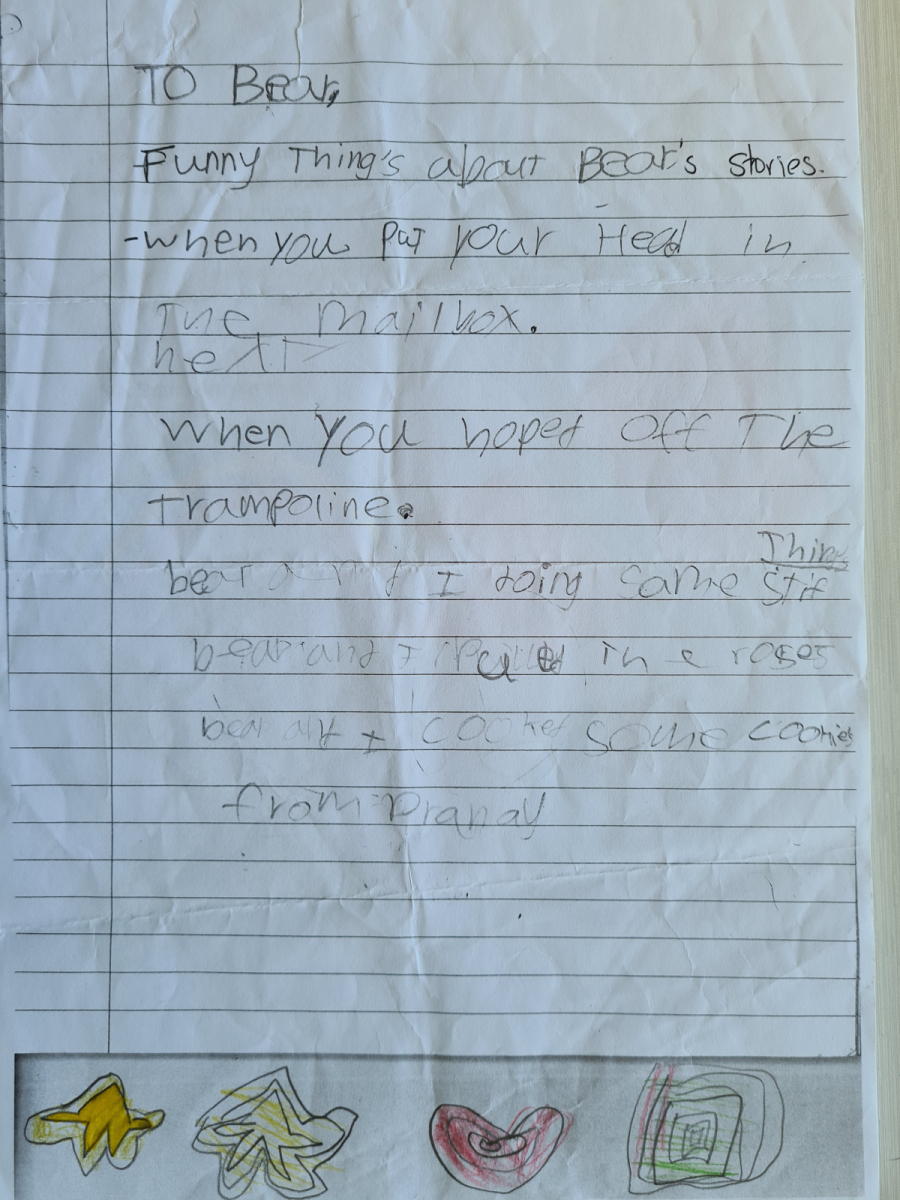 TO Bear,
Funny Thing's about Bear's stories.
-when you put your Head in
The mailbox.
next
when you hoped off The
trampoline.
Things
bear and I doing same stif
bear and I in the roses
bear and I cooked some cookies
from: Pranay